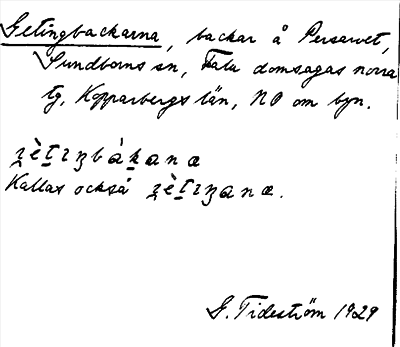 Getingbackarna, backar å Persarvet,
Sundborns sn, Falu domsagas norra
tg, Kopparbergs län, NO om byn.
Kallas också
G. Tideström 1929